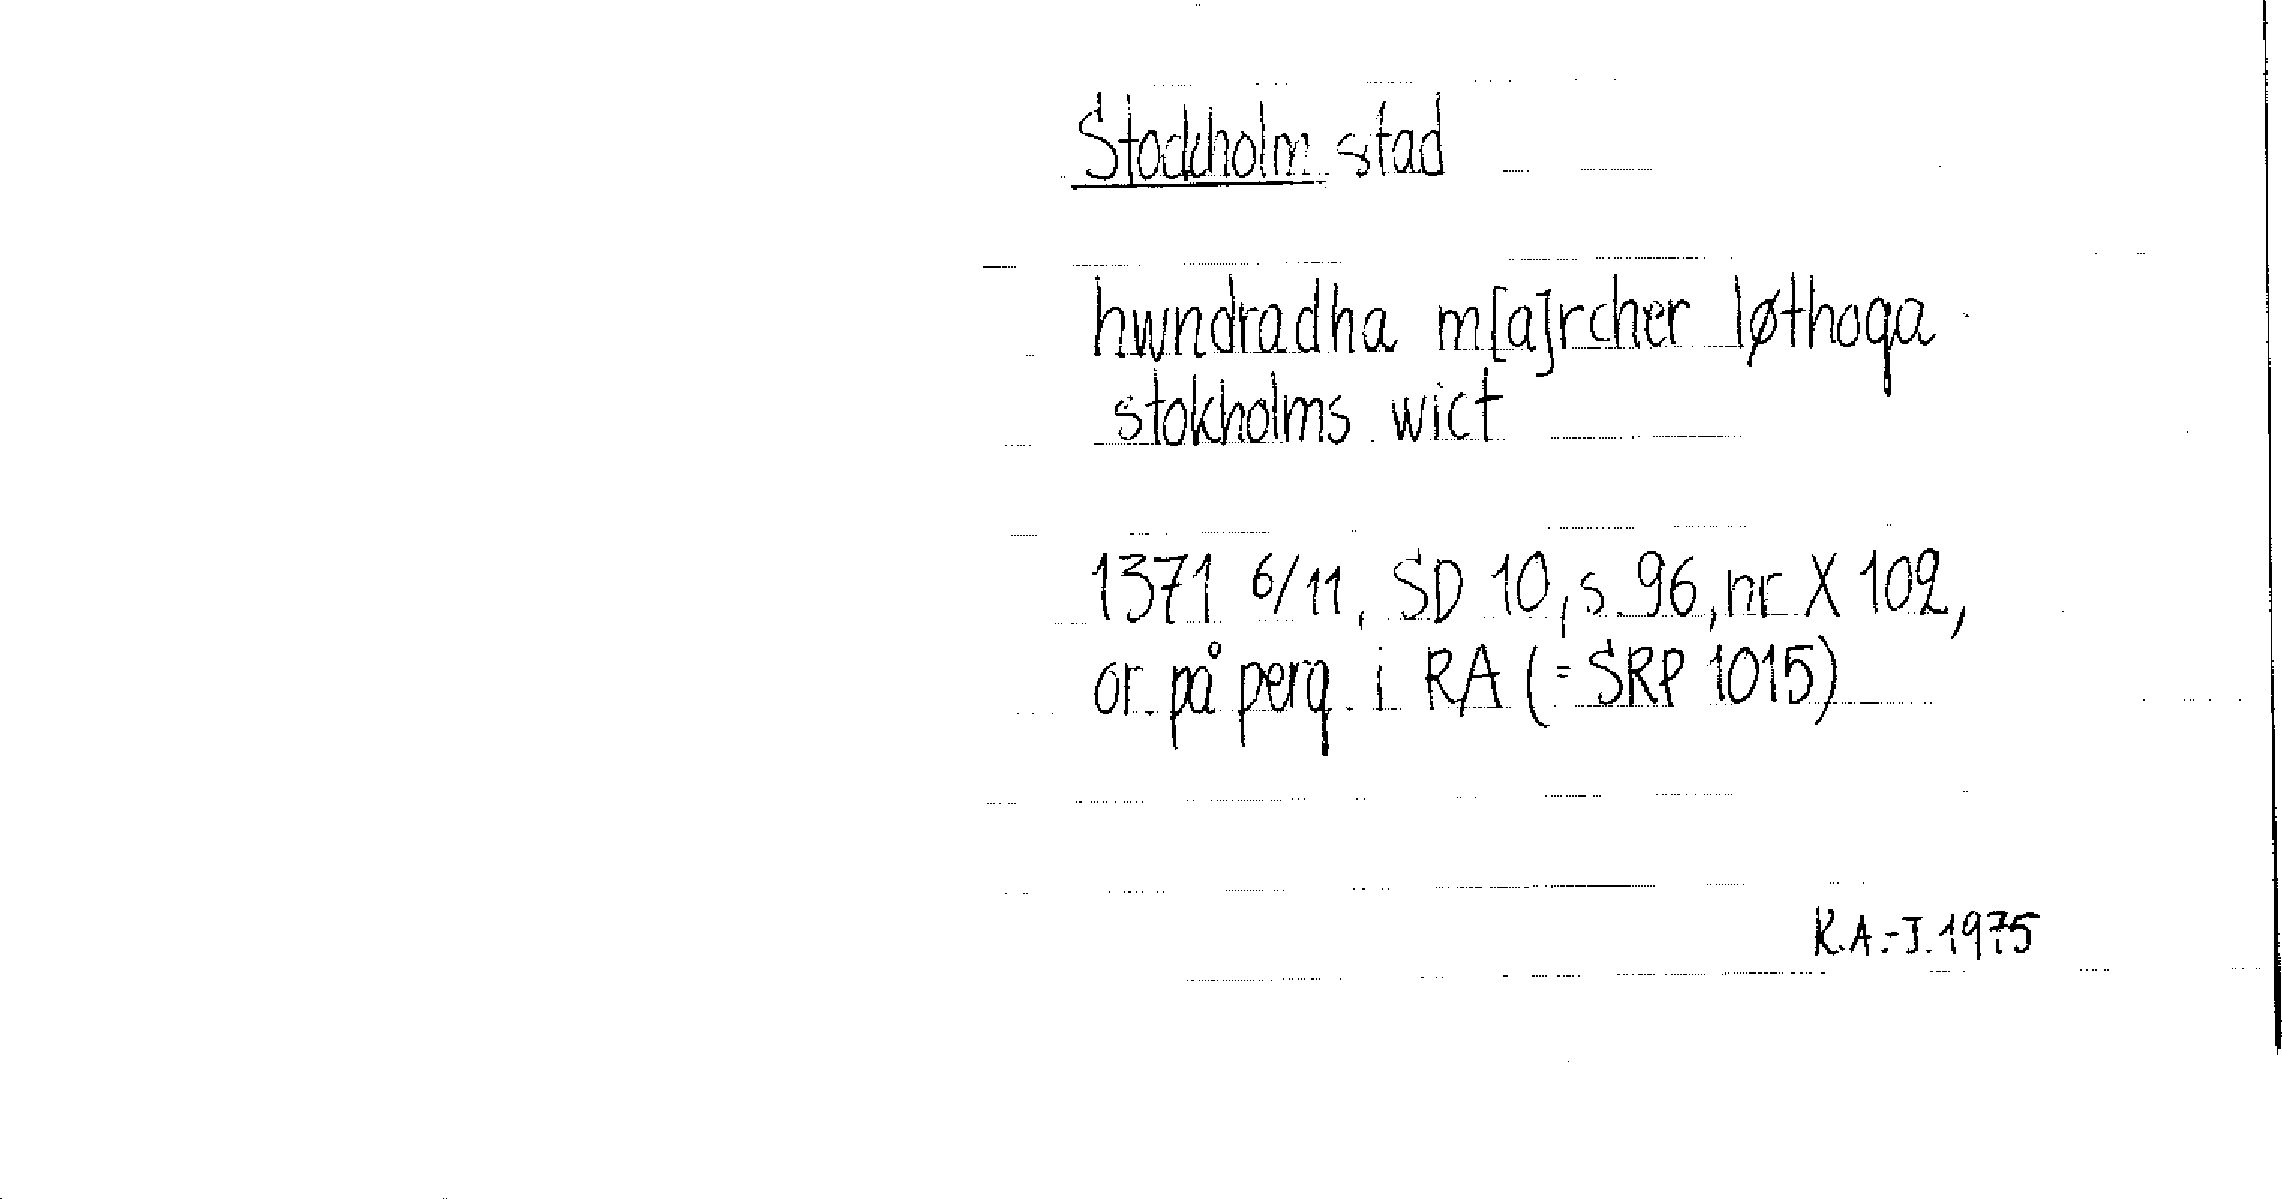 Stockholm stad
hwndradha m[a]rcher løthoga
stokholms wict
1371 6/11, SD 10, s 96, nr X 102,
or på perg i RA (= SRP 1015)
R.A.-J. 1975